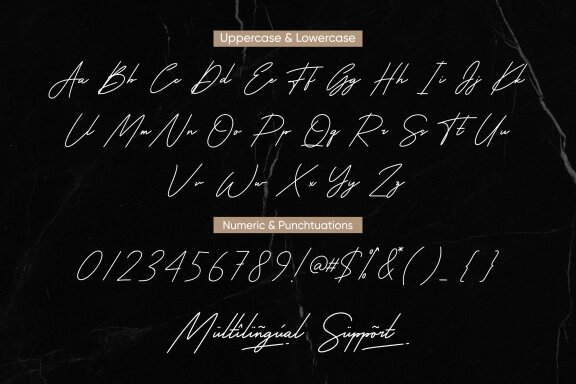 Uppercase & Lowercase
Aa Bb Cc Dd Ee Ff Gg Hh Ii Jj Kk
Ll Mm Nn Oo Pp Qq Rr Ss Tt Uu
Vv Ww Xx Yy Zz
Numeric & Punchtuations
0123456789!@#$%^&*()_{}
Mültilîñgúal Süppõrt